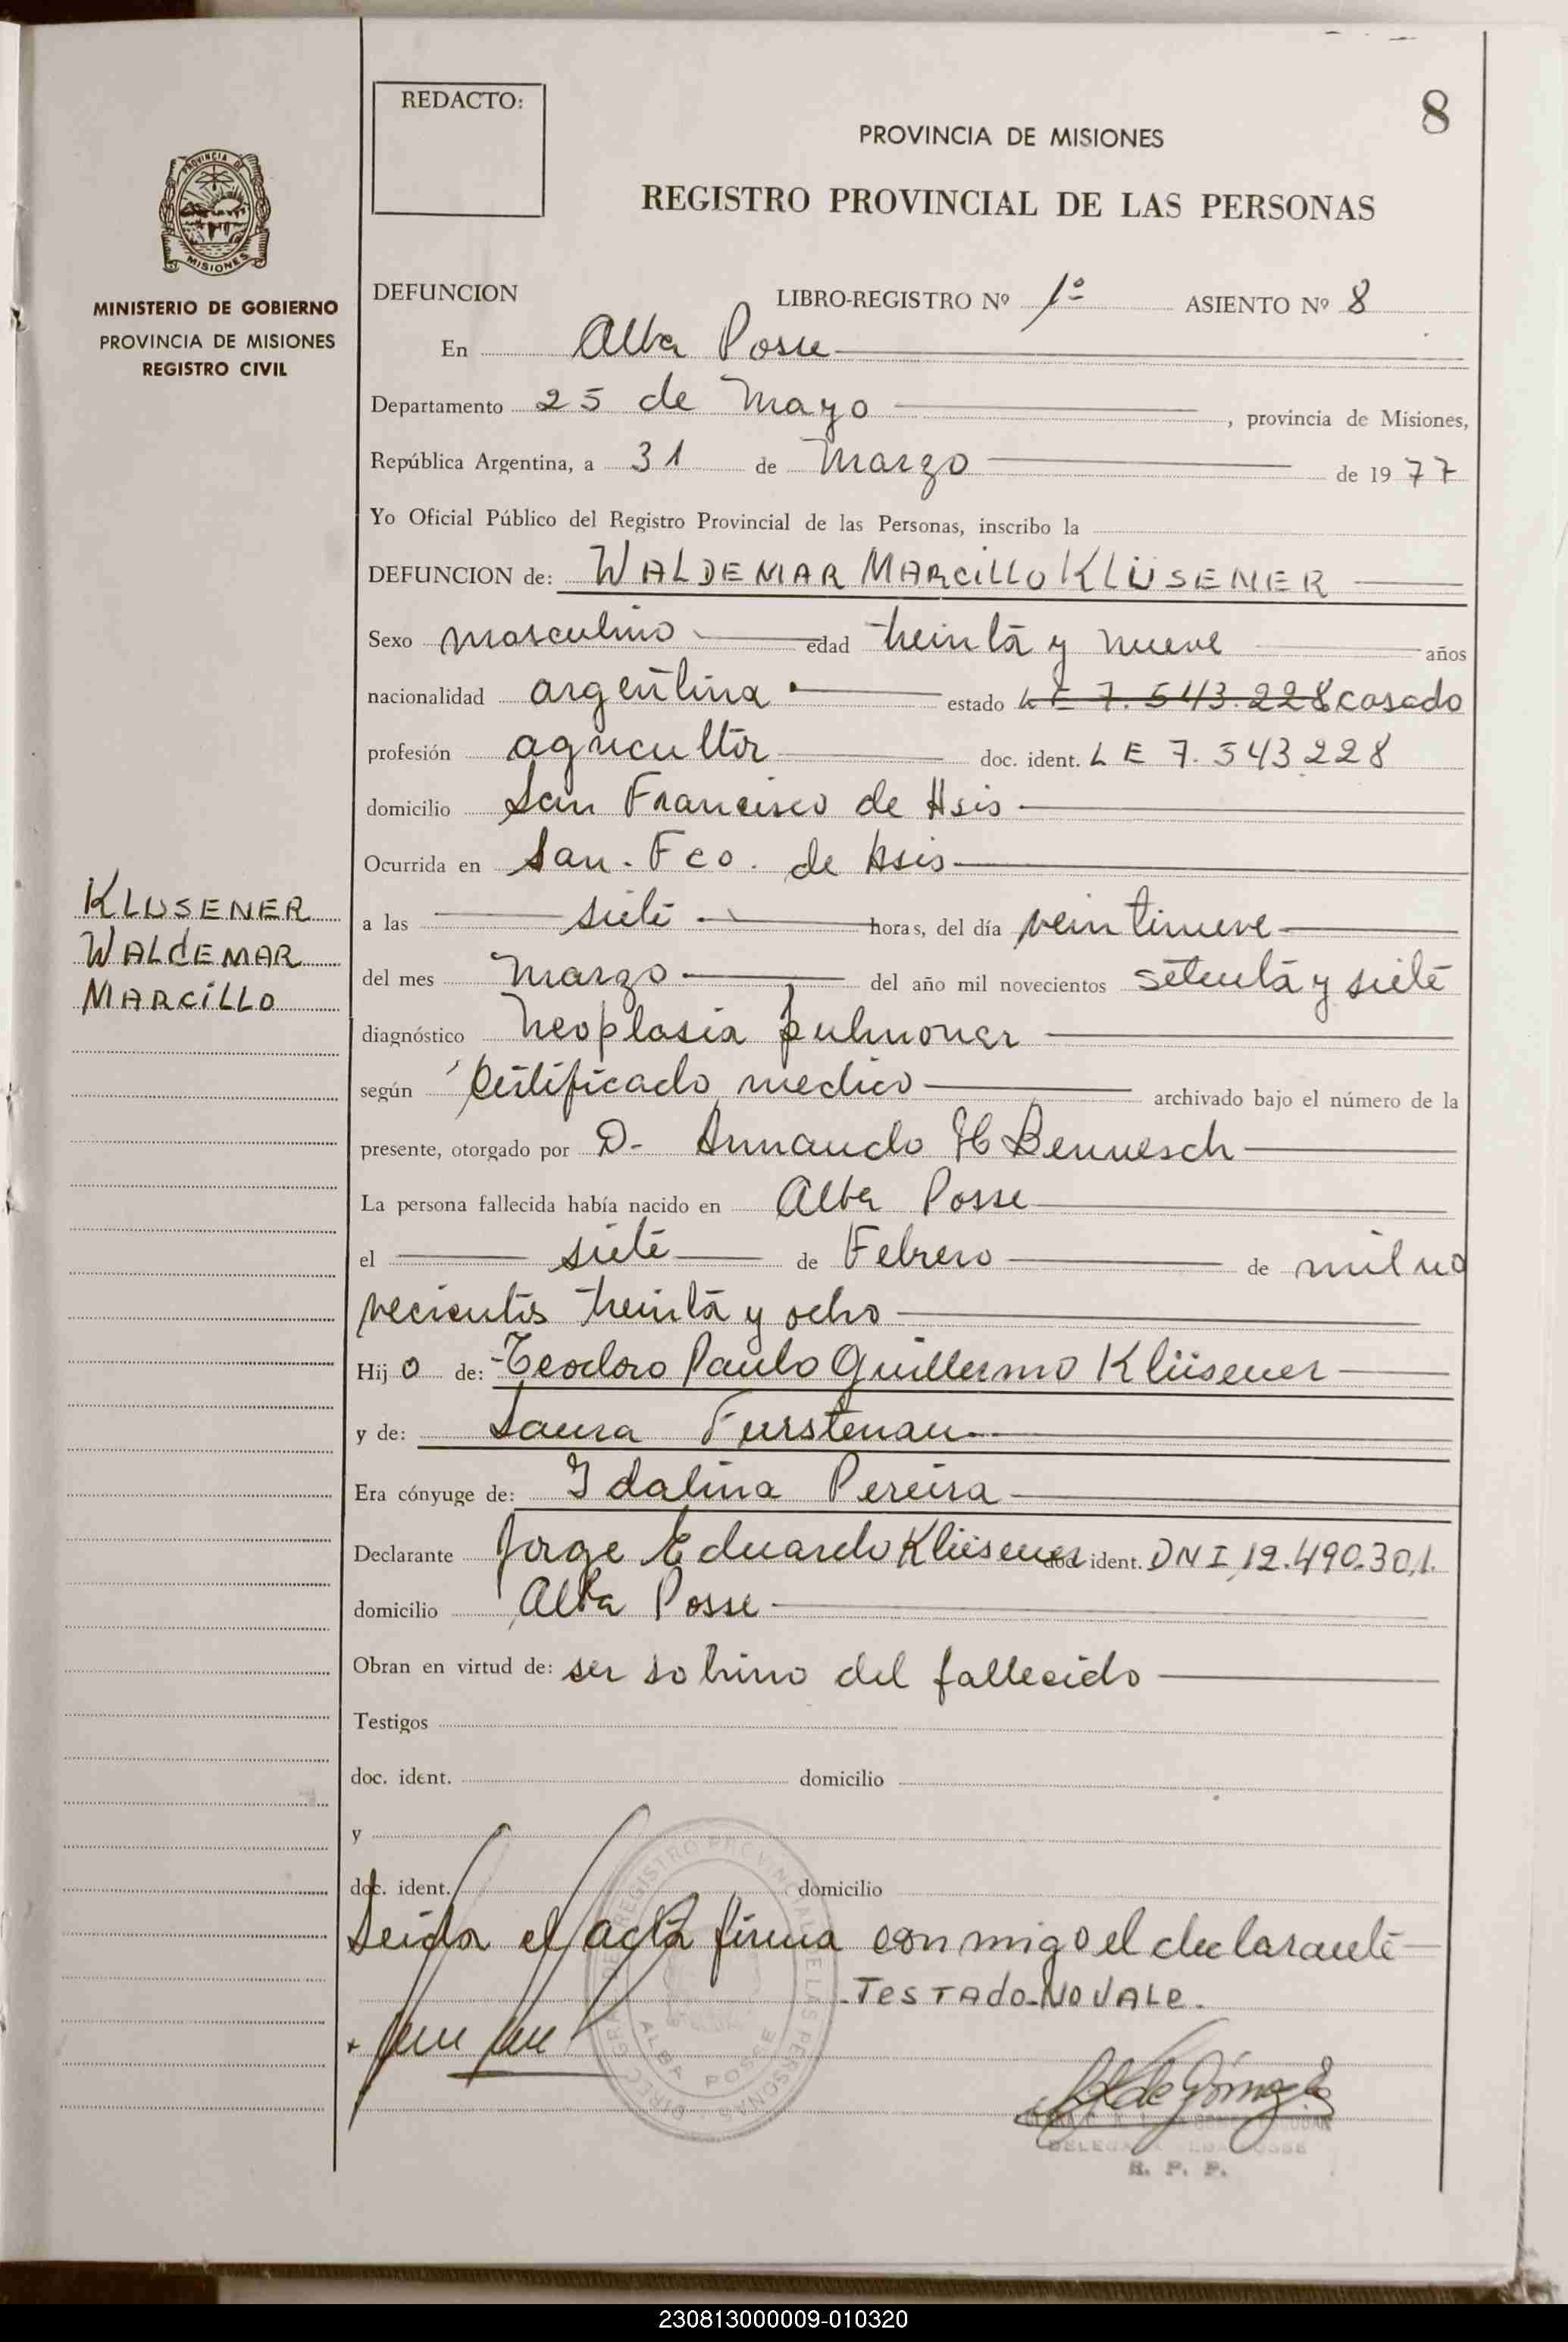 REDACTO:
8
PROVINCIA DE MISIONES
REGISTRO PROVINCIAL DE LAS PERSONAS
PROVINCIA DE
MISIONES
MINISTERIO DE GOBIERNO
PROVINCIA DE MISIONES
REGISTRO CIVIL
DEFUNCION LIBRO-REGISTRO Nº 1º ASIENTO Nº 8
En Alba Posse
Departamento 25 de Mayo, provincia de Misiones,
República Argentina, a 31 de Marzo de 1977
Yo Oficial Público del Registro Provincial de las Personas, inscribo la
DEFUNCION de: WALDEMAR MARCILLO KLÜSENER
Sexo masculino edad treinta y nueve años
nacionalidad argentina estado LE 7.543.228 casado
profesión agricultor doc. ident. LE 7.543.228
domicilio San Francisco de Asis
Ocurrida en San. Fco. de Asis
KLUSENER
WALDEMAR
MARCILLO
a las siete horas, del día veintinueve
del mes Marzo del año mil novecientos setenta y siete
diagnóstico Neoplasia pulmonar
según Certificado medico archivado bajo el número de la
presente, otorgado por D- Armando H Bennesch
La persona fallecida había nacido en Alba Posse
el siete de Febrero de mil no
vecientos treinta y ocho
Hijo de: Teodoro Paulo Guillermo Klüsener
y de: Laura Furstenau
Era cónyuge de: Idalina Pereira
Declarante Jorge Eduardo Klüsener doc ident. DNI 12.490.301.
domicilio Alba Posse
Obran en virtud de: ser sobrino del fallecido
Testigos
doc. ident. domicilio
y
doc. ident. domicilio
Leida el acta firma conmigo el declarante
-TESTADO-NO VALE.
DIREC GRAL DE REGISTRO PROVINCIAL DE LAS PERSONAS
ALBA POSSE
R. P. P.
230813000009-010320